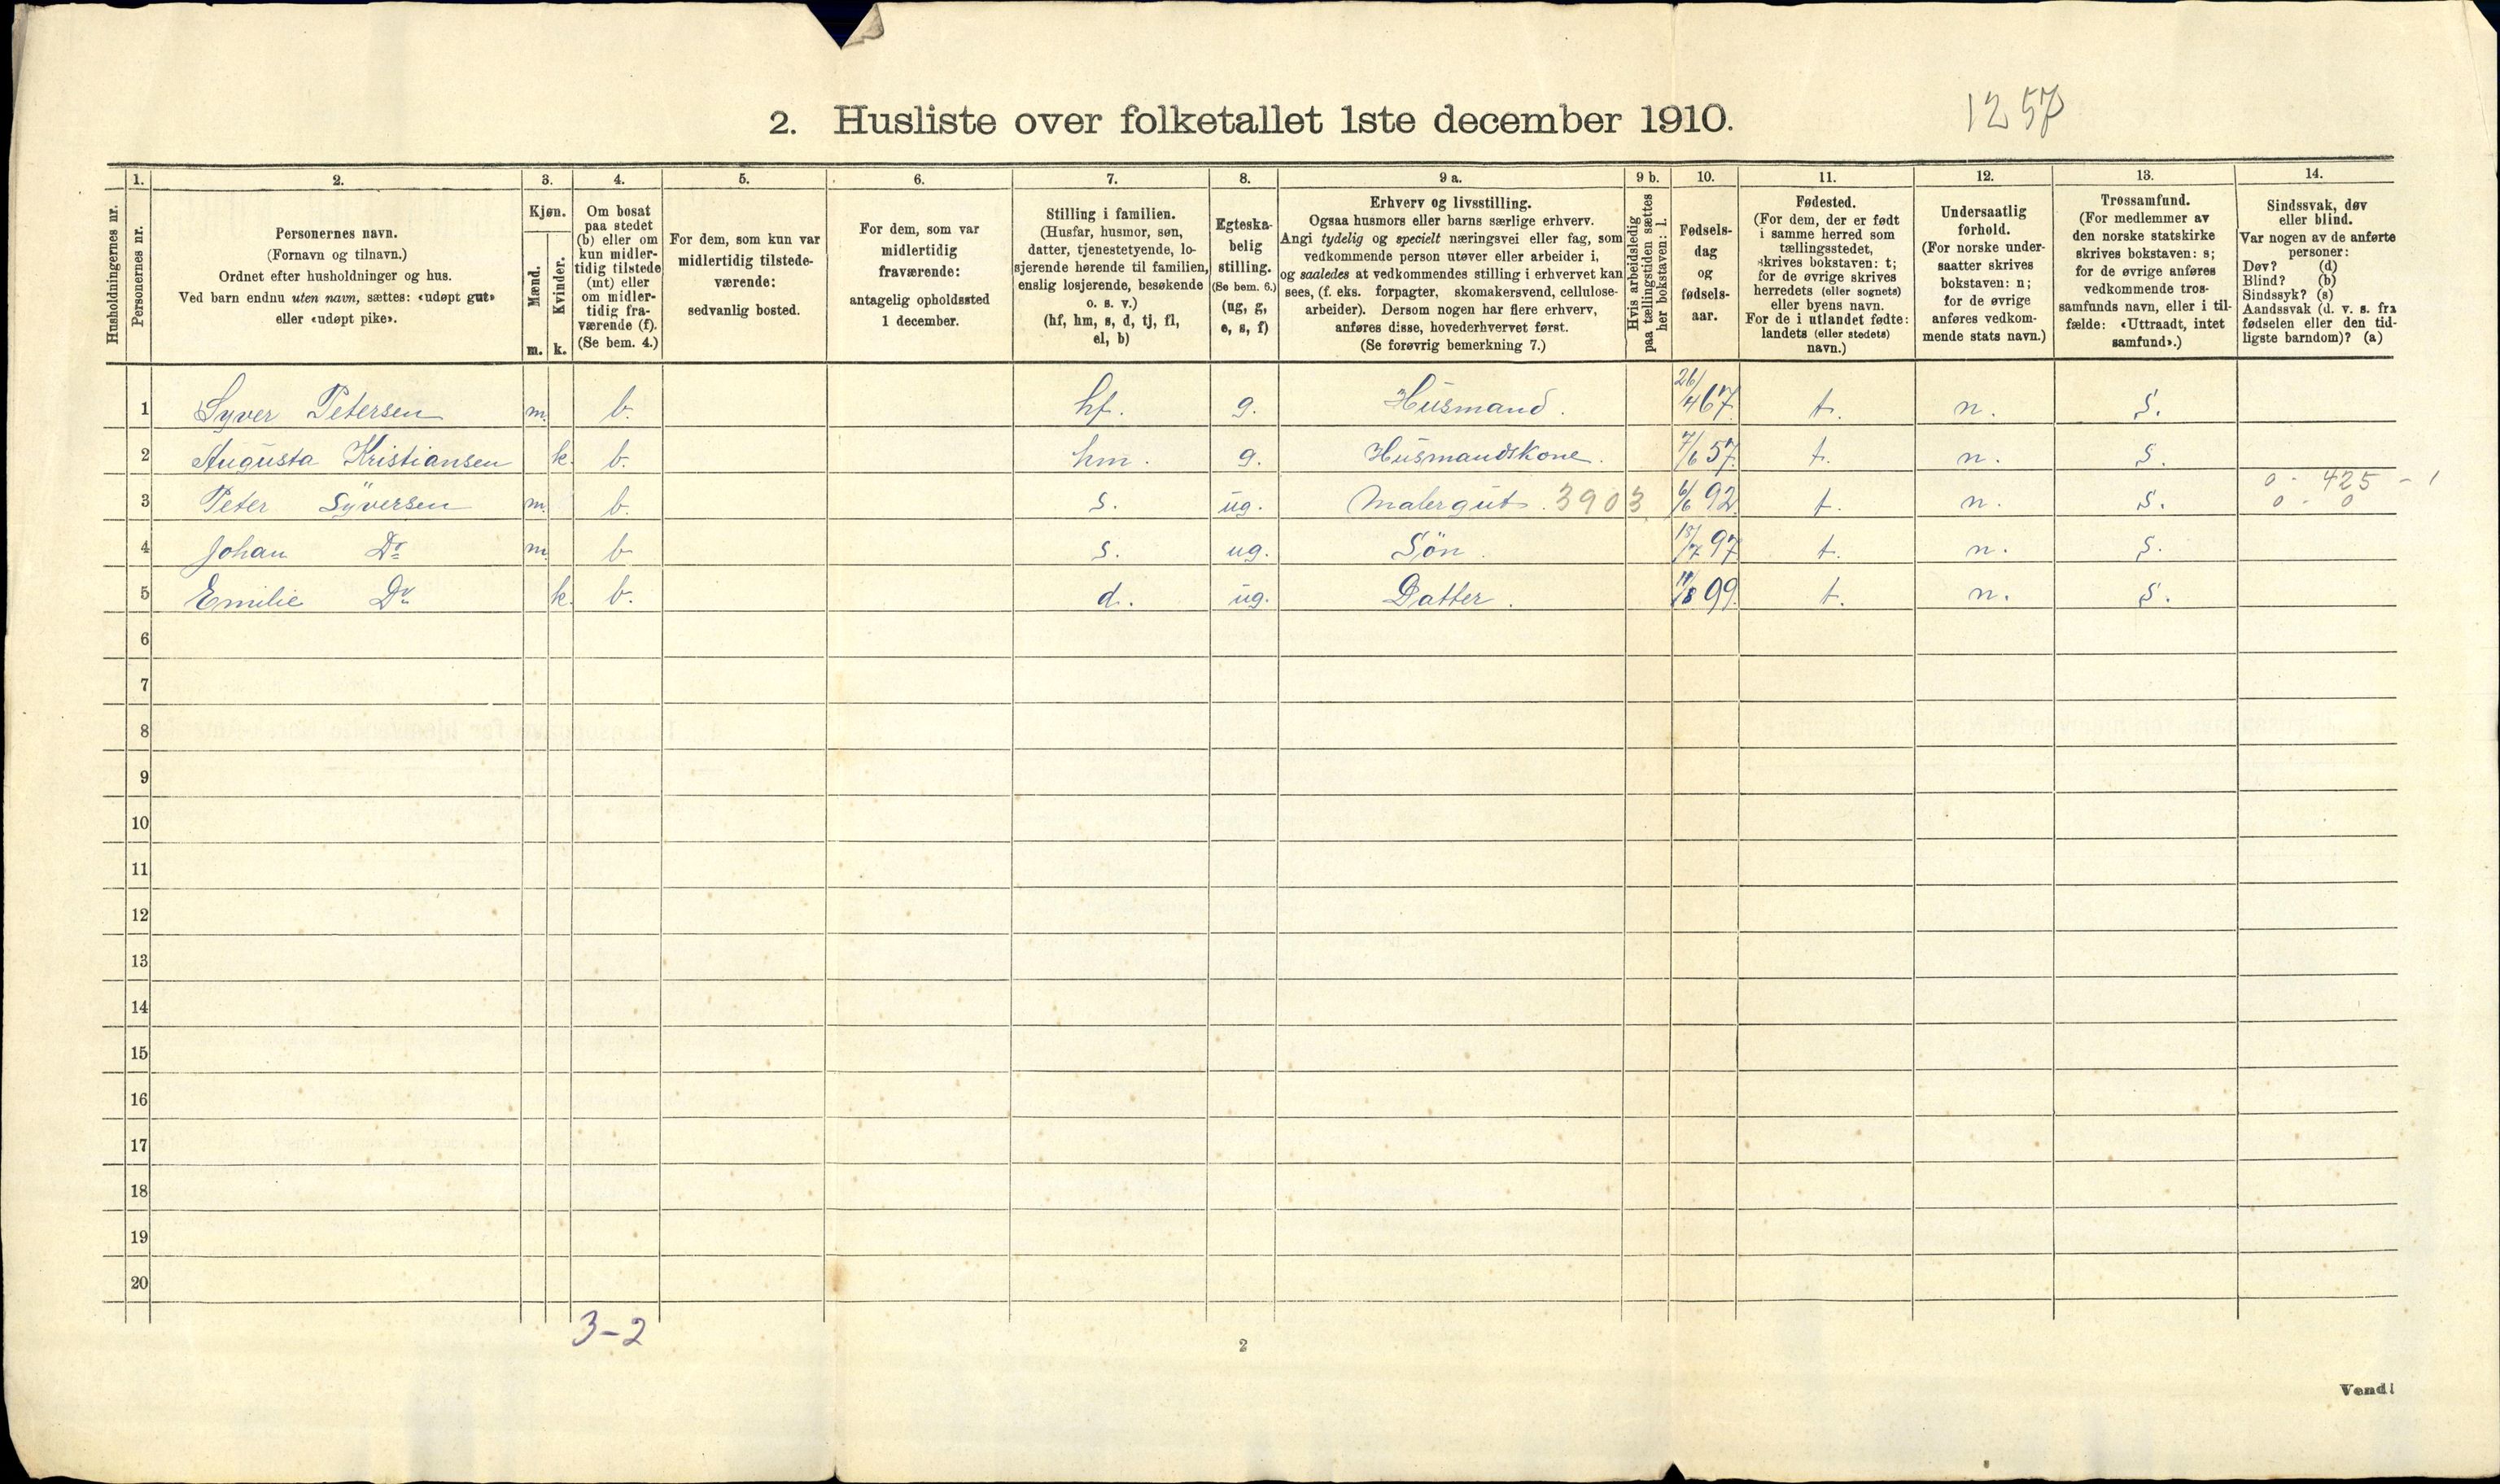 1257
2. Husliste over folketallet 1ste december 1910.
Husholdningernes nr.
1. Personernes nr.
2. Personernes navn. (Fornavn og tilnavn.) Ordnet efter husholdninger og hus. Ved barn endnu uten navn, sættes: «udøpt gut» eller «udøpt pike».
3. Kjøn. Mænd. m. Kvinder. k.
4. Om bosat paa stedet (b) eller om kun midlertidig tilstede (mt) eller om midlertidig fraværende (f). (Se bem. 4.)
5. For dem, som kun var midlertidig tilstedeværende: sedvanlig bosted.
6. For dem, som var midlertidig fraværende: antagelig opholdssted 1 december.
7. Stilling i familien. (Husfar, husmor, søn, datter, tjenestetyende, losjerende hørende til familien, enslig losjerende, besøkende o. s. v.) (hf, hm, s, d, tj, fl, el, b)
8. Egteskabelig stilling. (Se bem. 6.) (ug, g, e, s, f)
9 a. Erhverv og livsstilling. Ogsaa husmors eller barns særlige erhverv. Angi tydelig og specielt næringsvei eller fag, som vedkommende person utøver eller arbeider i, og saaledes at vedkommendes stilling i erhvervet kan sees, (f. eks. forpagter, skomakersvend, cellulosearbeider). Dersom nogen har flere erhverv, anføres disse, hovederhvervet først. (Se forøvrig bemerkning 7.)
9 b. Hvis arbeidsledig paa tællingstiden sættes her bokstaven: l.
10. Fødselsdag og fødselsaar.
11. Fødested. (For dem, der er født i samme herred som tællingsstedet, skrives bokstaven: t; for de øvrige skrives herredets (eller sognets) eller byens navn. For de i utlandet fødte: landets (eller stedets) navn.)
12. Undersaatlig forhold. (For norske undersaatter skrives bokstaven: n; for de øvrige anføres vedkommende stats navn.)
13. Trossamfund. (For medlemmer av den norske statskirke skrives bokstaven: s; for de øvrige anføres vedkommende trossamfunds navn, eller i tilfælde: «Uttraadt, intet samfund».)
14. Sindssvak, døv eller blind. Var nogen av de anførte personer: Døv? (d) Blind? (b) Sindssyk? (s) Aandssvak (d. v. s. fra fødselen eller den tidligste barndom)? (a)
1 Syver Petersen m. b. hf. g. Husmand. 26/4 67. t. n. s.
2 Augusta Kristiansen k. b. hm. g. Husmandskone. 7/6 57. t. n. s.
0 - 425 - 1
3 Peter Syversen m. b. s. ug. Malergut. 3903 6/6 92. t. n. s. 0 - 0
4 Johan Do m. b s. ug. Søn. 18/7 97. t. n. s.
5 Emilie Do k. b. d. ug. Datter. 11/8 99. t. n. s.
6
7
8
9
10
11
12
13
14
15
16
17
18
19
20
3-2
2
Vend!